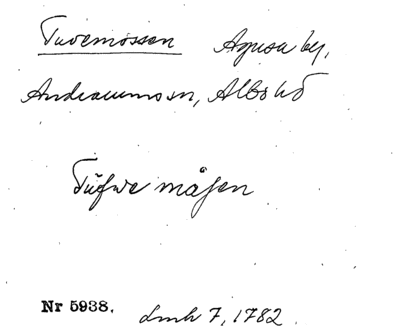 Tuvemossen Agusa by,
Andrarums sn, Albo hd
Tüfwe måſen
Nr 5938. dmh 7, 1782